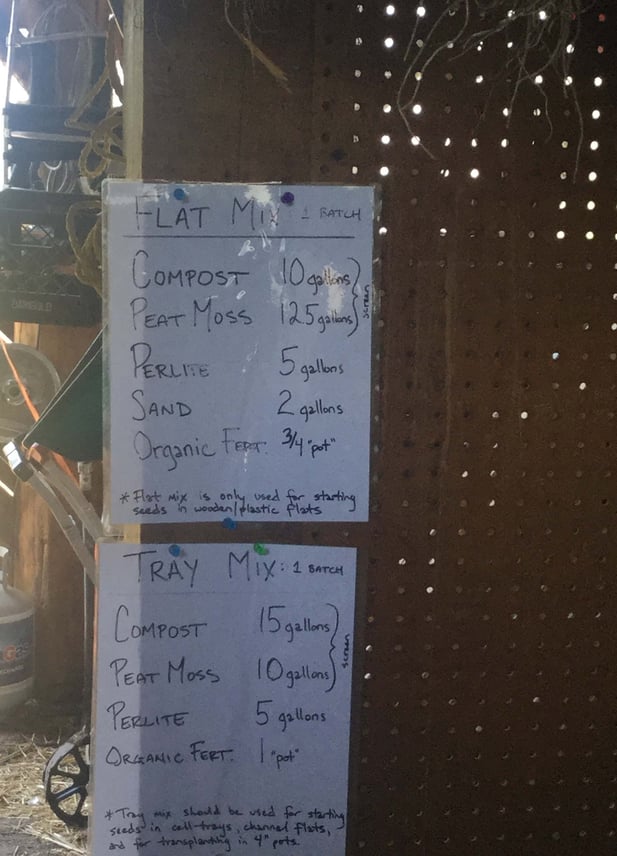 FLAT MIX : 1 BATCH
COMPOST 10 gallons
PEAT MOSS 12.5 gallons
screen
PERLITE 5 gallons
SAND 2 gallons
Organic FERT. 3/4 "pot"
* Flat mix is only used for starting
seeds in wooden/plastic flats
TRAY MIX: 1 BATCH
COMPOST 15 gallons
PEAT MOSS 10 gallons
screen
PERLITE 5 gallons
ORGANIC FERT. 1 "pot"
* Tray mix should be used for starting
seeds in cell-trays, channel flats,
and for transplanting in 4" pots.